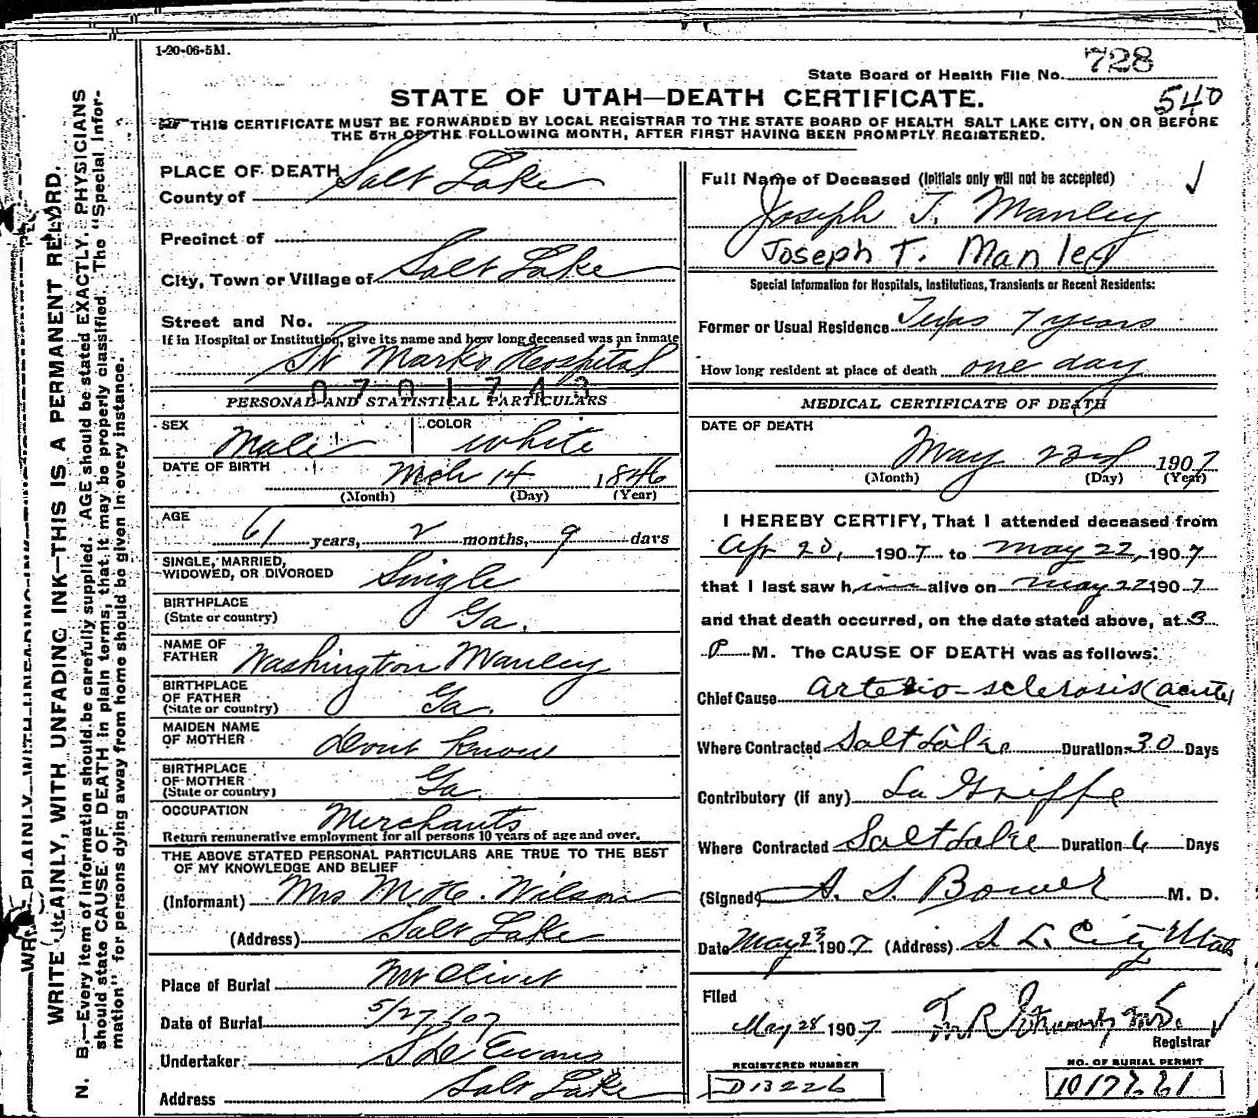 1-20-06-5M.
State Board of Health File No. 728
540
STATE OF UTAH—DEATH CERTIFICATE.
THIS CERTIFICATE MUST BE FORWARDED BY LOCAL REGISTRAR TO THE STATE BOARD OF HEALTH SALT LAKE CITY, ON OR BEFORE
THE 5TH OF THE FOLLOWING MONTH, AFTER FIRST HAVING BEEN PROMPTLY REGISTERED.
WRITE PLAINLY, WITH UNFADING INK—THIS IS A PERMANENT RECORD.
N. B.—Every item of information should be carefully supplied. AGE should be stated EXACTLY. PHYSICIANS
should state CAUSE OF DEATH in plain terms, that it may be properly classified. The "Special Infor-
mation" for persons dying away from home should be given in every instance.
PLACE OF DEATH
County of Salt Lake
Precinct of
City, Town or Village of Salt Lake
Street and No.
If in Hospital or Institution, give its name and how long deceased was an inmate
St Marks Hospital
0701743
PERSONAL AND STATISTICAL PARTICULARS
SEX Male COLOR White
DATE OF BIRTH Mch 14 1846
(Month) (Day) (Year)
AGE 61 years, 2 months, 9 days
SINGLE, MARRIED,
WIDOWED, OR DIVORCED Single
BIRTHPLACE
(State or country) Ga.
NAME OF
FATHER Washington Manley
BIRTHPLACE
OF FATHER
(State or country) Ga.
MAIDEN NAME
OF MOTHER dont know
BIRTHPLACE
OF MOTHER
(State or country) Ga.
OCCUPATION Merchants
Return remunerative employment for all persons 10 years of age and over.
THE ABOVE STATED PERSONAL PARTICULARS ARE TRUE TO THE BEST
OF MY KNOWLEDGE AND BELIEF
(Informant) Mrs M. H. Wilson
(Address) Salt Lake
Place of Burial Mt Olivet
Date of Burial 5/27/07
Undertaker Evans
Address Salt Lake
Full Name of Deceased (Initials only will not be accepted)
Joseph T. Manley
Joseph T. Manley
Special Information for Hospitals, Institutions, Transients or Recent Residents:
Former or Usual Residence Texas 7 years
How long resident at place of death one day
MEDICAL CERTIFICATE OF DEATH
DATE OF DEATH
May 23d 1907
(Month) (Day) (Year)
I HEREBY CERTIFY, That I attended deceased from
Apr 20, 1907 to May 22, 1907
that I last saw him alive on May 22 1907
and that death occurred, on the date stated above, at 3
P M. The CAUSE OF DEATH was as follows:
Chief Cause Arterio-sclerosis (acute)
Where Contracted Salt Lake Duration 30 Days
Contributory (if any) La Grippe
Where Contracted Salt Lake Duration 6 Days
(Signed) A. S. Bower M. D.
Date May 23 1907 (Address) S. L. City Utah
Filed
May 28 1907
Registrar
REGISTERED NUMBER
D 13226
NO. OF BURIAL PERMIT